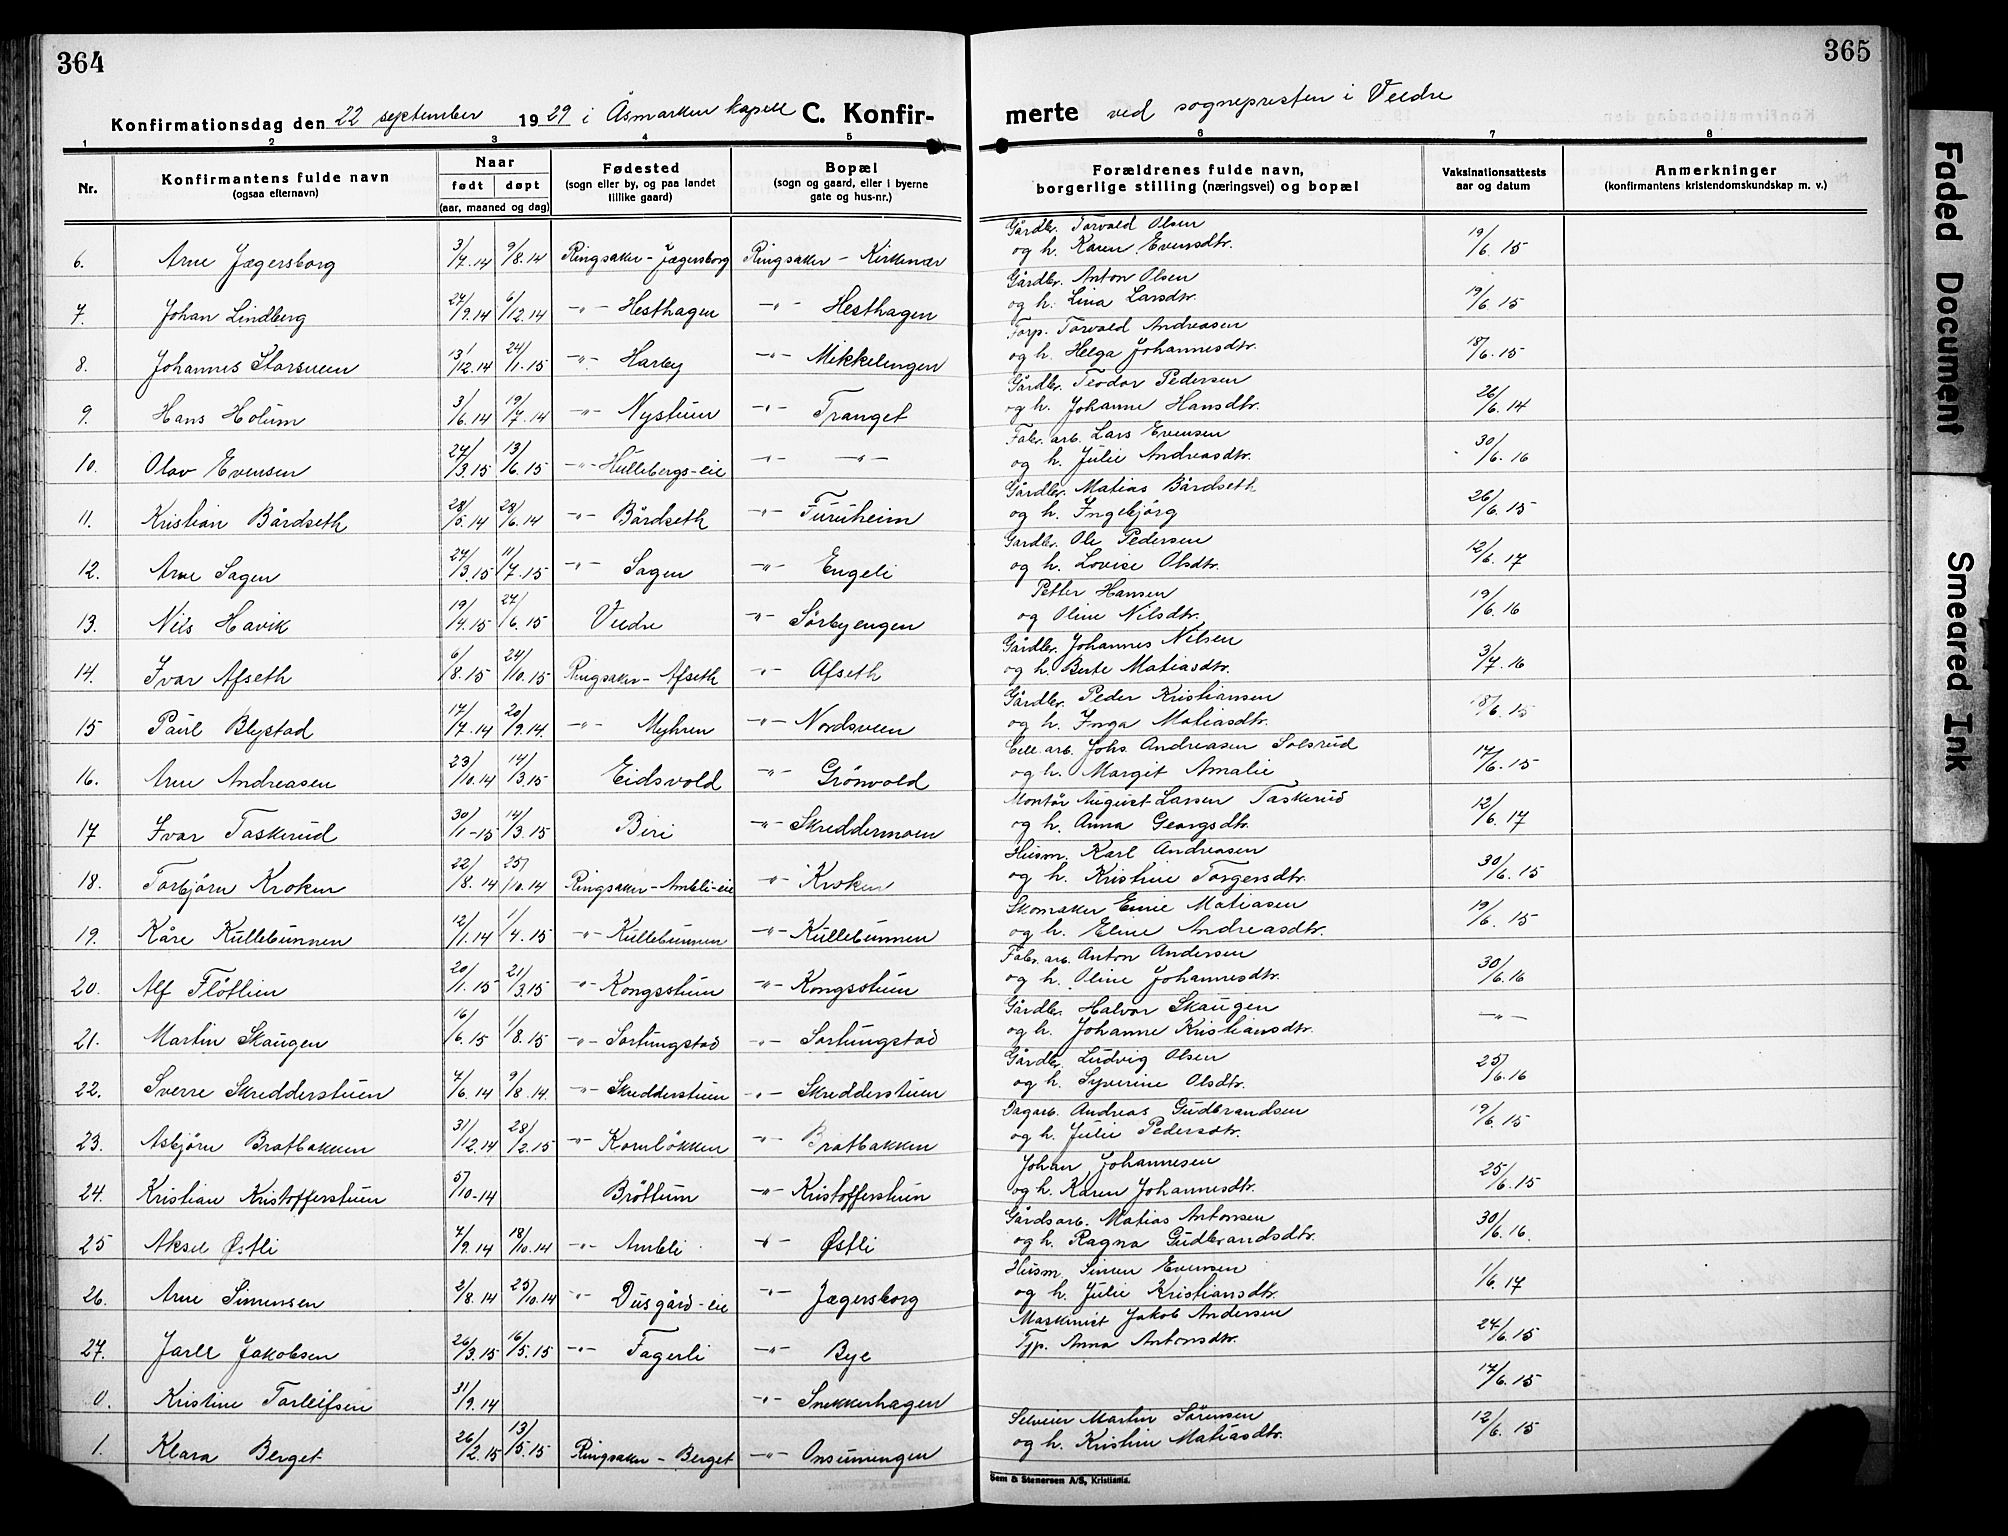 364
365
Konfirmationsdag den 22 september 1929 i Åsmarken kapell C. Konfir-
merte ved sognepresten i Veldre
1 2 3 4 5 6 7 8
Nr. Konfirmantens fulde navn (ogsaa efternavn) Naar født døpt (aar, maaned og dag) Fødested (sogn eller by, og paa landet tillike gaard) Bopæl (sogn og gaard, eller i byerne gate og hus-nr.) Forældrenes fulde navn, borgerlige stilling (næringsvei) og bopæl Vaksinationsattests aar og datum Anmerkninger (konfirmantens kristendomskundskap m. v.)
6. Arne Jægersborg 3/7.14 9/8.14 Ringsaker - Jægersborg Ringsaker - Kirkenær Gårdbr. Torvald Olsen og h. Karen Evensdtr. 19/6.15
7. Johan Lindberg 27/9.14 6/12.14 -"- Hesthagen -"- Hesthagen Gårdbr. Anton Olsen og h. Lina Larsdtr. 19/6.15
8. Johannes Storsveen 13/12.14 24/1.15 -"- Harby -"- Mikkelengen Forp. Torvald Andreasen og h. Helga Johannesdtr. 18/6.15
9. Hans Holum 3/6.14 19/7.14 -"- Nystuen -"- Tranget Gårdbr. Teodor Pedersen og h. Johanne Hansdtr. 26/6.14
10. Olav Evensen 24/3.15 13/6.15 -"- Hullebergs-eie -"- -"- Fabr. arb. Lars Evensen og h. Julie Andreasdtr. 30/6.16
11. Kristian Bårdseth 28/5.14 28/6.14 -"- Bårdseth -"- Furuheim Gårdbr. Matias Bårdseth og h. Ingebjörg 26/6.15
12. Arne Sagen 27/3.15 11/7.15 -"- Sagen -"- Engeli Gardbr. Ole Pedersen og h. Lovise Olsdtr. 12/6.17
13. Nils Havik 19/4.15 27/6.15 Veldre -"- Sörbyengen Petter Hansen og Oline Nilsdtr. 19/6.16
14. Ivar Afseth 6/8.15 24/10.15 Ringsaker - Afseth -"- Afseth Gårdbr. Johannes Nilsen og h. Berte Matiasdtr. 3/7.16
15 Paul Blystad 17/7.14 20/9.14 -"- Myhren -"- Nordsveen Gårdbr. Peder Kristiansen og h. Inga Matiasdtr. 18/6.15
16. Arne Andreasen 23/10.14 14/3.15 Eidsvold -"- Grönvold Cell. arb. Johs. Andreasen Solsrud og h. Margit Amalie 17/6.15
17 Ivar Taskerud 30/1-15 14/3.15 Biri -"- Skreddermoen Montør August Larsen Taskerud og h. Anna Georgsdtr. 12/6.17
18. Torbjörn Kroken 22/8.14 25/10.14 Ringsaker - Ambli-eie -"- Kroken Husm. Karl Andreasen og h. Kristine Torgersdtr. 30/6.15
19. Kåre Kullebunnen 12/1.14 1/4.15 -"- Kullebunnen -"- Kullebunnen Skomaker Emil Matiasen og h. Eline Andreasdtr. 19/6.15
20. Alf Flötlien 20/1.15 21/3.15 -"- Kongsstuen -"- Kongsstuen Fabr. arb. Anton Andersen og h. Oline Johannesdtr. 30/6.16
21. Martin Skaugen 16/6.15 1/8.15 -"- Sorlungstad -"- Sorlungstad Gårdbr. Halvor Skaugen og h. Johanne Kristiansdtr. -"-
22. Sverre Skredderstuen 7/6.14 9/8.14. -"- Skredderstuen -"- Skredderstuen Gårdbr. Ludvig Olsen og h. Syverine Olsdtr. 25/6.16
23. Asbjörn Bratbakken 31/12.14 28/2.15 -"- Kornlökken -"- Bratbakken Dagarb. Andreas Gudbrandsen og h. Julie Pedersdtr. 19/6.15
24. Kristian Kristofferstuen 5/10-14 Bröttum -"- Kristofferstuen Johan Johannesen og h. Karen Johannesdtr. 25/6.15
25 Aksel Østli 7/9.14 18/10.14 -"- Ambli -"- Østli Gårdsarb. Matias Antonsen og h. Ragna Gudbrandsdtr. 30/6.16.
26. Arne Simensen 2/8.14 25/10.14 -"- Dusgård-eie -"- Jægersborg Husm. Simen Evensen og h. Julie Kristiansdtr. 1/6.17
27. Jarle Jakobsen 26/3.15 16/5.15 -"- Fagerli -"- Bye Maskinist Jakob Andersen Tjp. Anna Antonsdtr. 24/6.15
0. Kristine Torleifsen 31/9.14 -"- Snekkerhagen 17/6.15
1. Klara Berget 26/2.15 13/5.15 Ringsaker - Berget -"- Onsumengen Selveier Martin Sörensen og h. Kristine Matiasdtr. 12/6.15
Sem & Stenersen A/S, Kristiania.
Faded Document
Smeared Ink